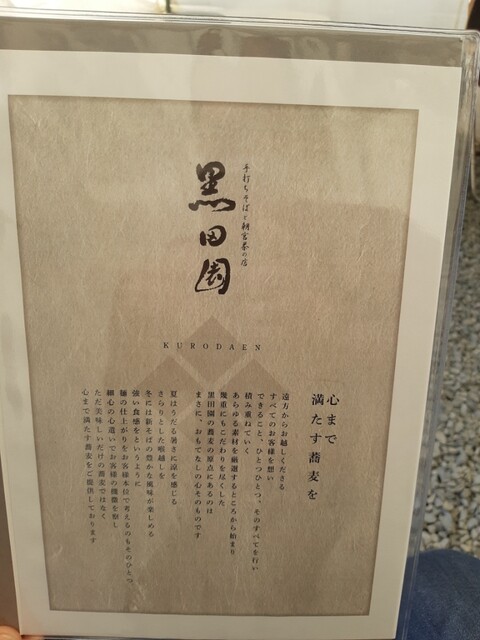 手打ちそばと朝宮茶の店
黒田園
KURODAEN
心まで
満たす蕎麦を
遠方からお越しくださる
すべてのお客様を想い
できること、ひとつひとつ、そのすべてを行い
積み重ねていく
あらゆる素材を厳選するところから始まり
幾重にもこだわりを尽くした
黒田園の蕎麦の原点にあるのは
まさに、おもてなしの心そのものです
夏はうだる暑さに涼を感じる
さらりとした喉越しを
冬には新そばの豊かな風味が楽しめる
強い食感をというように
麺の仕上がりをお客様本位で考えるのもそのひとつ
細心の心遣いでお客様の機微を察し
ただ美味しいだけの蕎麦ではなく
心まで満たす蕎麦をご提供しております